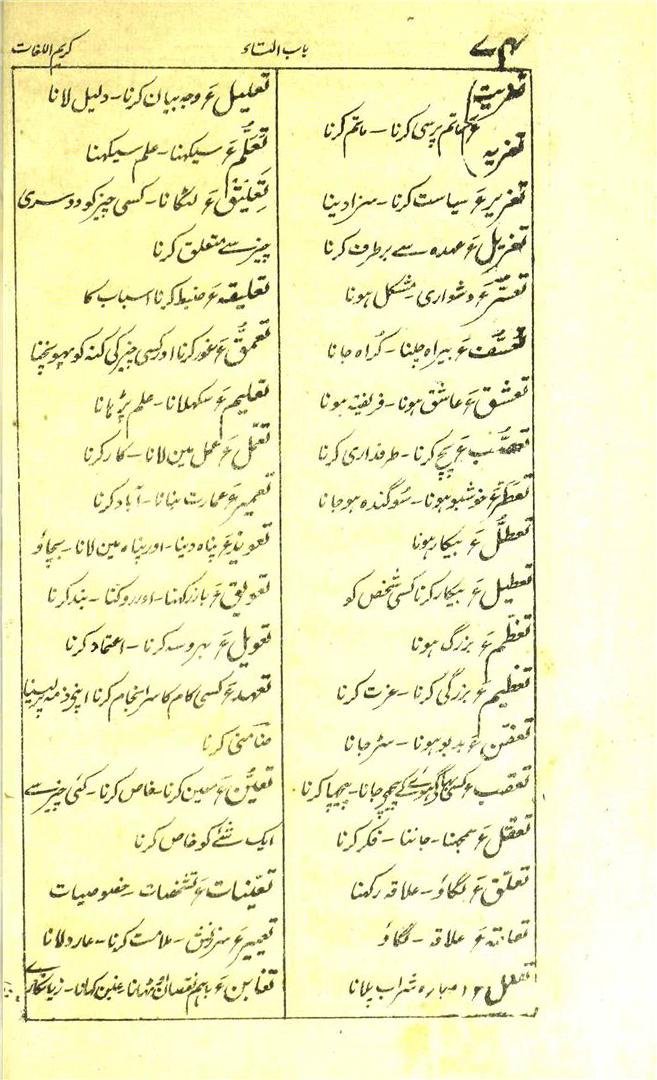 ۷۴ باب التاء کریم اللغات
تعزیت
تعزیہ ع ماتم پرسی کرنا ۔ ماتم کرنا
تعزیر ع سیاست کرنا ۔ سزا دینا
تعزیل ع عہدہ سے برطرف کرنا
تعسّر ع دشواری مشکل ہونا
تعسّف ع بیراہ چلنا ۔ گراہ جانا
تعشق ع عاشق ہونا ۔ فریفتہ ہونا
تعصّب ع پچ کرنا ۔ طرفداری کرنا
تعطّر ع خوشبو ہونا ۔ سوگندہ ہو جانا
تعطّل ع بیکار ہونا
تعطیل ع بیکار کرنا کسی شخص کو
تعظّم ع بزرگ ہونا
تعظیم ع بزرگی کرنا ۔ عزت کرنا
تعفّن ع بدبو ہونا ۔ سڑ جانا
تعقب ع کسی کے پیچھے جانا ۔ پیچھا کرنا
تعقّل ع سمجہنا ۔ جاننا ۔ فکر کرنا
تعلّق ع لگاؤ ۔ علاقہ رکہنا
ع علاقہ ۔ لگاؤ
ع دوبارہ شراب پلانا
تعلیل ع وجہ بیان کرنا ۔ دلیل لانا
تعلّم ع سیکہنا ۔ علم سیکہنا
تعلیق ع لٹکانا ۔ کسی چیز کو دوسری
چیز سے متعلق کرنا
تعلیقہ ع ضبط کرنا اسباب کا
تعمّق ع غور کرنا اور کسی چیز کی کنہ کو پہونچنا
تعلیم ع سکہلانا ۔ علم پڑہانا
تعمّل ع عمل مین لانا ۔ کار کرنا
تعمیر ع عمارت بنانا ۔ آباد کرنا
تعویذ ع پناہ دینا ۔ اور پناہ مین لانا ۔ بچاؤ
تعویق ع باز رکہنا ۔ اور روکنا ۔ بند کرنا
تعویل ع بہروسہ کرنا ۔ اعتماد کرنا
تعہد ع کسی کام کا سرانجام کرنا اپنی ذمہ پر لینا
ضامنی کرنا
تعیّن ع معین کرنا ۔ خاص کرنا ۔ کئی چیز سے
ایک شئے کو خاص کرنا
تعیّنات ع تشخصات ۔ خصوصیات
تعییر ع سرزنش ۔ ملامت کرنا ۔ عار دلانا
تغابن ع باہم نقصان اٹھانا ۔ غبن کہانا ۔